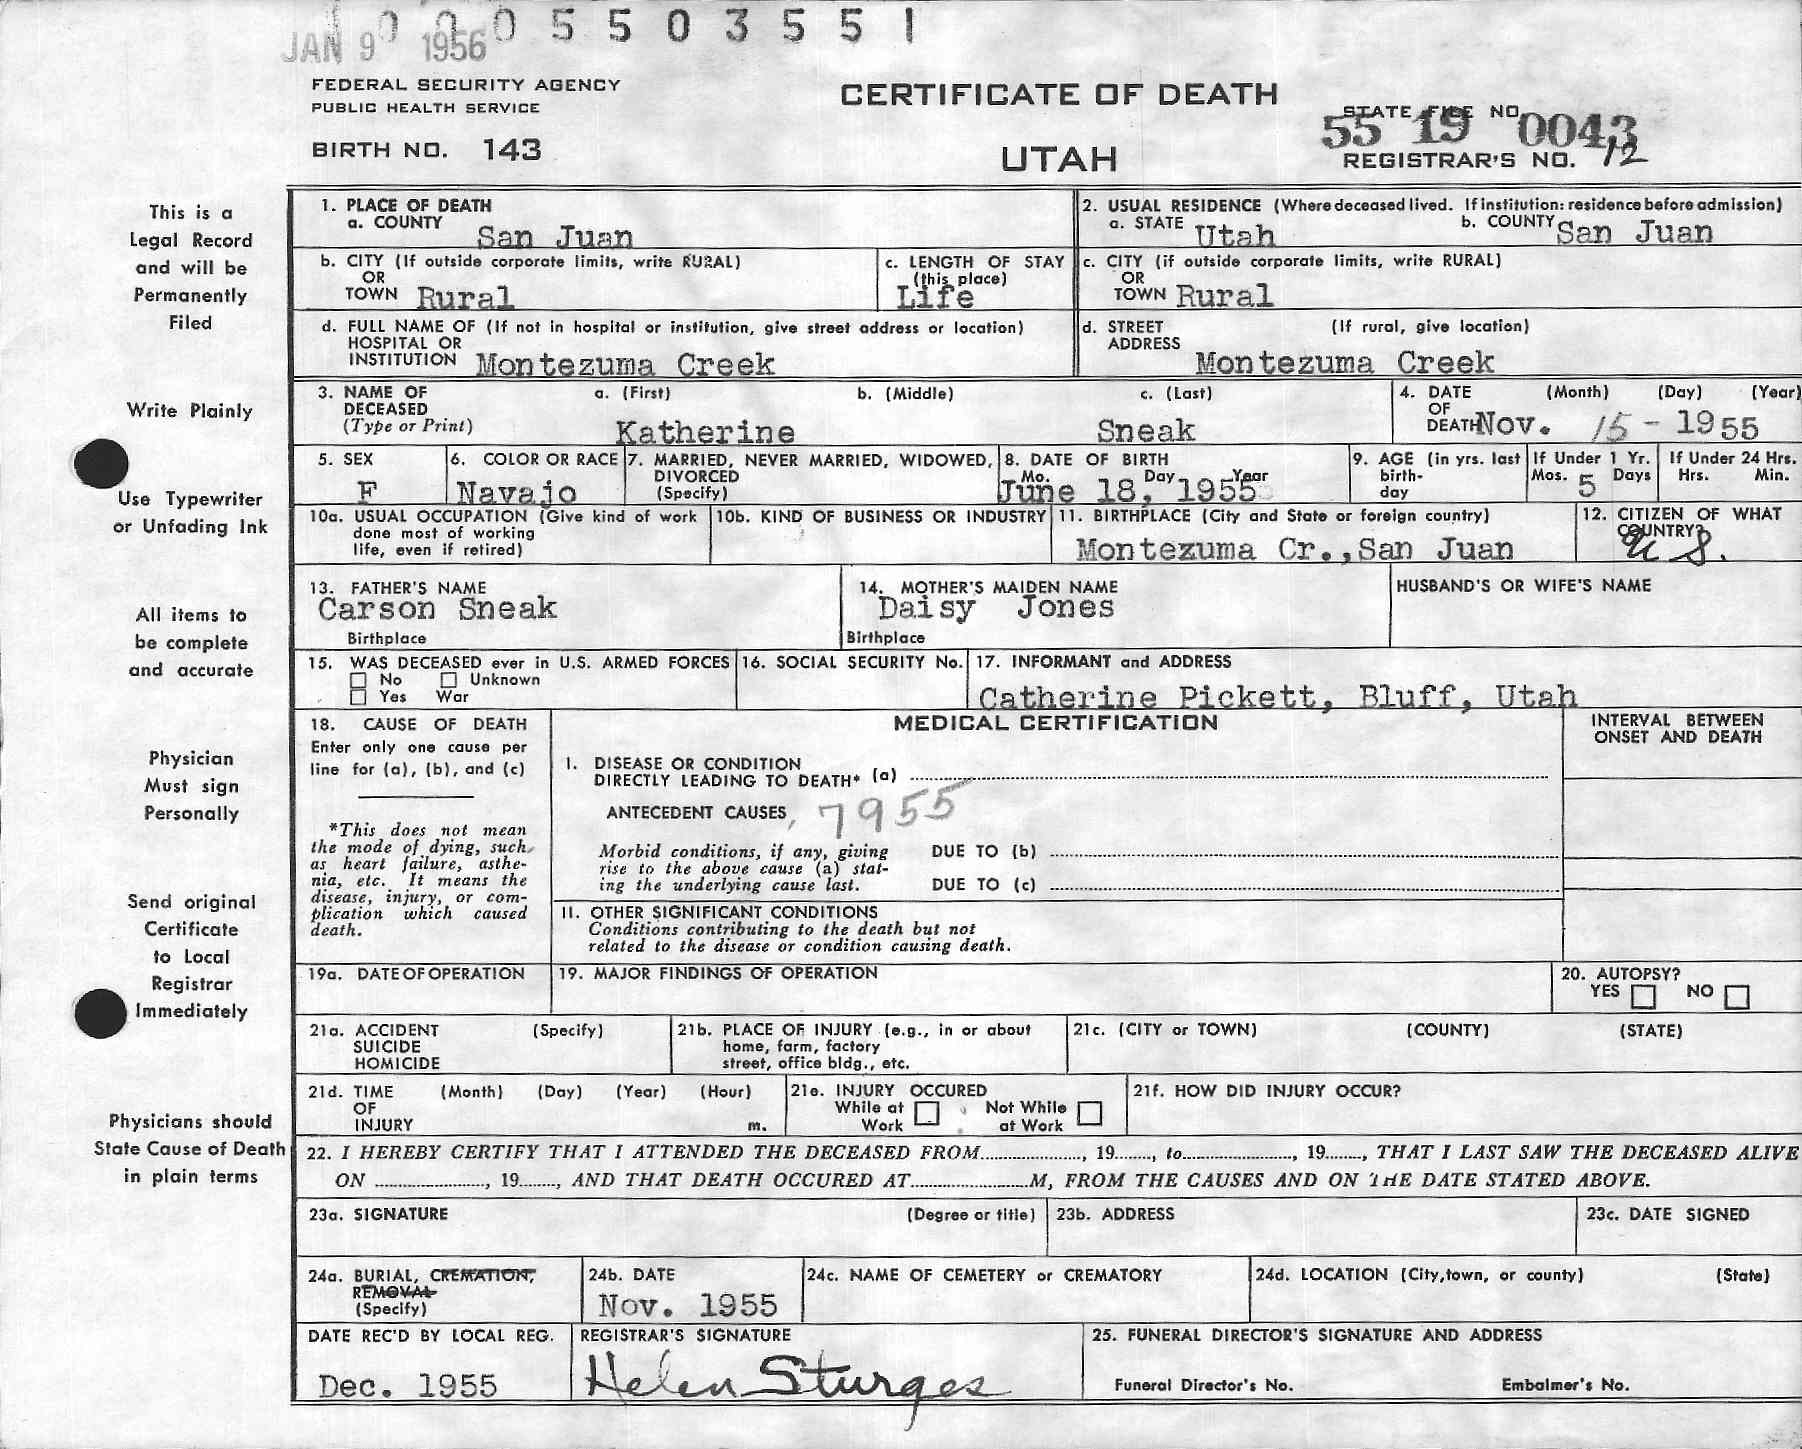 0 0 0 5 5 0 3 5 5 1
JAN 9 1956
FEDERAL SECURITY AGENCY
PUBLIC HEALTH SERVICE
BIRTH NO. 143
CERTIFICATE OF DEATH
UTAH
STATE FILE NO.
55 19 0043
REGISTRAR'S NO. 12
This is a
Legal Record
and will be
Permanently
Filed
Write Plainly
Use Typewriter
or Unfading Ink
All items to
be complete
and accurate
Physician
Must sign
Personally
Send original
Certificate
to Local
Registrar
Immediately
Physicians should
State Cause of Death
in plain terms
1. PLACE OF DEATH
a. COUNTY San Juan
2. USUAL RESIDENCE (Where deceased lived. If institution: residence before admission)
a. STATE Utah b. COUNTY San Juan
b. CITY (If outside corporate limits, write RURAL)
OR
TOWN Rural
c. LENGTH OF STAY
(this place)
Life
c. CITY (if outside corporate limits, write RURAL)
OR
TOWN Rural
d. FULL NAME OF (If not in hospital or institution, give street address or location)
HOSPITAL OR
INSTITUTION Montezuma Creek
d. STREET (If rural, give location)
ADDRESS
Montezuma Creek
3. NAME OF a. (First) b. (Middle) c. (Last)
DECEASED
(Type or Print) Katherine Sneak
4. DATE (Month) (Day) (Year)
OF
DEATH Nov. 15 - 1955
5. SEX
F
6. COLOR OR RACE
Navajo
7. MARRIED, NEVER MARRIED, WIDOWED,
DIVORCED
(Specify)
8. DATE OF BIRTH
Mo. Day Year
June 18, 1955
9. AGE (in yrs. last
birth-
day
If Under 1 Yr.
Mos. 5 Days
If Under 24 Hrs.
Hrs. Min.
10a. USUAL OCCUPATION (Give kind of work
done most of working
life, even if retired)
10b. KIND OF BUSINESS OR INDUSTRY
11. BIRTHPLACE (City and State or foreign country)
Montezuma Cr.,San Juan
12. CITIZEN OF WHAT
COUNTRY?
U S.
13. FATHER'S NAME
Carson Sneak
Birthplace
14. MOTHER'S MAIDEN NAME
Daisy Jones
Birthplace
HUSBAND'S OR WIFE'S NAME
15. WAS DECEASED ever in U.S. ARMED FORCES
No Unknown
Yes War
16. SOCIAL SECURITY No.
17. INFORMANT and ADDRESS
Catherine Pickett, Bluff, Utah
18. CAUSE OF DEATH
Enter only one cause per
line for (a), (b), and (c)
*This does not mean
the mode of dying, such
as heart failure, asthe-
nia, etc. It means the
disease, injury, or com-
plication which caused
death.
MEDICAL CERTIFICATION
INTERVAL BETWEEN
ONSET AND DEATH
I. DISEASE OR CONDITION
DIRECTLY LEADING TO DEATH* (a)
ANTECEDENT CAUSES, 7955
Morbid conditions, if any, giving DUE TO (b)
rise to the above cause (a) stat-
ing the underlying cause last. DUE TO (c)
II. OTHER SIGNIFICANT CONDITIONS
Conditions contributing to the death but not
related to the disease or condition causing death.
19a. DATE OF OPERATION
19. MAJOR FINDINGS OF OPERATION
20. AUTOPSY?
YES NO
21a. ACCIDENT (Specify)
SUICIDE
HOMICIDE
21b. PLACE OF INJURY (e.g., in or about
home, farm, factory
street, office bldg., etc.
21c. (CITY or TOWN) (COUNTY) (STATE)
21d. TIME (Month) (Day) (Year) (Hour)
OF
INJURY m.
21e. INJURY OCCURED
While at Not While
Work at Work
21f. HOW DID INJURY OCCUR?
22. I HEREBY CERTIFY THAT I ATTENDED THE DECEASED FROM............, 19......, to............, 19......, THAT I LAST SAW THE DECEASED ALIVE
ON ............, 19......, AND THAT DEATH OCCURED AT............M, FROM THE CAUSES AND ON THE DATE STATED ABOVE.
23a. SIGNATURE (Degree or title)
23b. ADDRESS
23c. DATE SIGNED
24a. BURIAL, CREMATION,
REMOVAL
(Specify)
24b. DATE
Nov. 1955
24c. NAME OF CEMETERY or CREMATORY
24d. LOCATION (City,town, or county) (State)
DATE REC'D BY LOCAL REG.
Dec. 1955
REGISTRAR'S SIGNATURE
Helen Sturges
25. FUNERAL DIRECTOR'S SIGNATURE AND ADDRESS
Funeral Director's No. Embalmer's No.